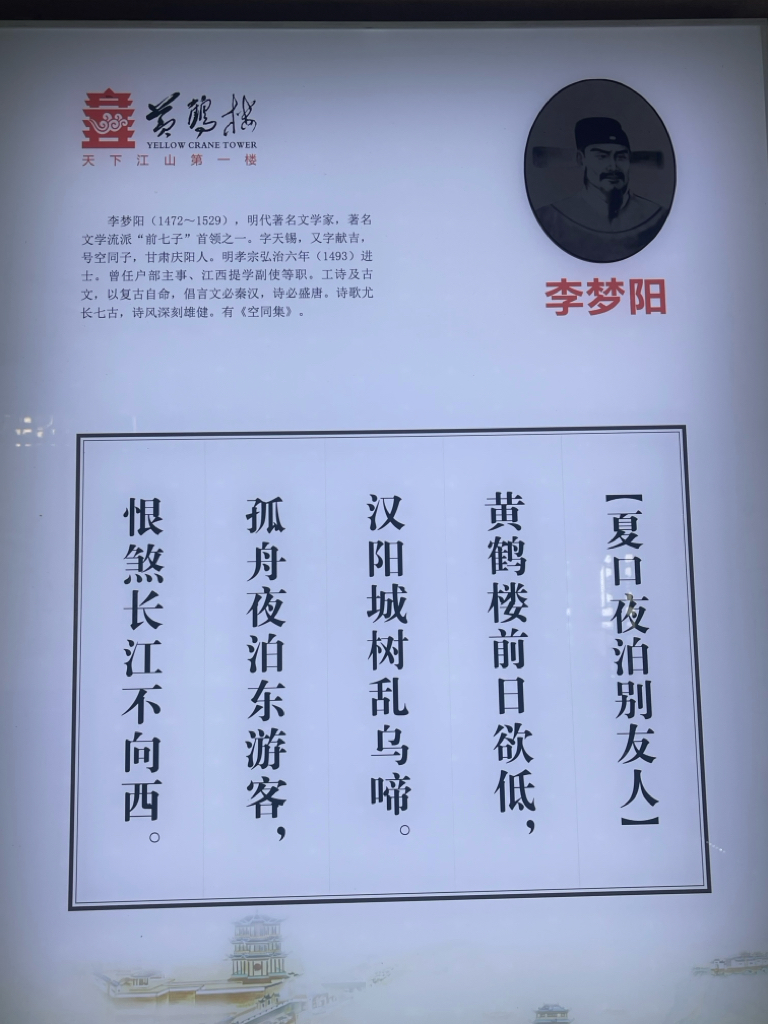 黄鹤楼
YELLOW CRANE TOWER
天下江山第一楼
李梦阳（1472～1529），明代著名文学家，著名
文学流派“前七子”首领之一。字天锡，又字献吉，
号空同子，甘肃庆阳人。明孝宗弘治六年（1493）进
士。曾任户部主事、江西提学副使等职。工诗及古
文，以复古自命，倡言文必秦汉，诗必盛唐。诗歌尤
长七古，诗风深刻雄健。有《空同集》。
李梦阳
【夏口夜泊别友人】
黄鹤楼前日欲低，
汉阳城树乱乌啼。
孤舟夜泊东游客，
恨煞长江不向西。